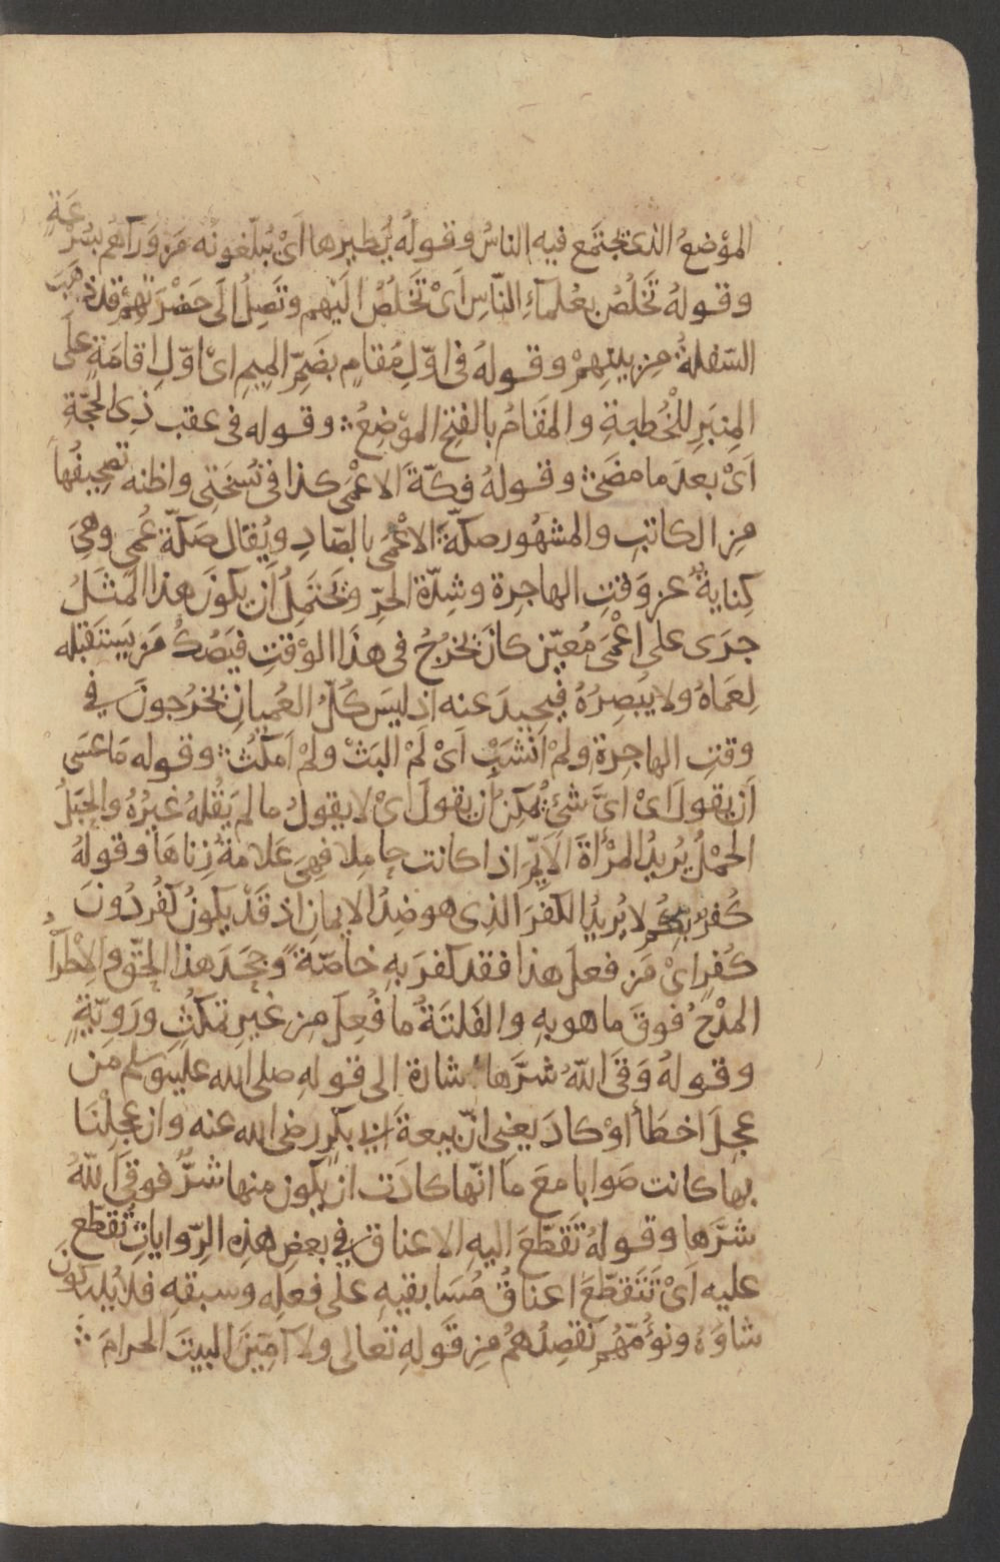 المؤضعُ الذى تجتمَع فيه الناسُ وقولُه يُطيرها اَىْ يُبلّغونه مَن وَرآهُم بسُرْعَةٍ
وقولهُ تَخلُصُ بعُلمآءِ النّاسِ اَىْ تَخلُصُ اليَهم وتَصِلُ الَى حَضْرَتهم وقد ذهَبَ
السّفلةُ مِن بينهِمْ وقولهُ فى اوّلِ مُقامٍ بضَمِّ الميمِ اىْ اوّلِ اقامَةٍ علَى
المِنبَرِ للْخُطبةِ والمَقامُ بالفتحِ الموْضِعُ ؞ وقوله فى عقب ذِى الحجّةِ
اَىْ بعدَ ما مضَى ؞ وقولهُ فكّةَ الاعْمَى كذا فى نُسْخَتِى واظنه تصحِيفُها
مِن الكاتبِ والمشهُور صكّةَ الاعْمى بالصّادِ ويُقال صَكّةَ عُمىٍ وهىَ
كِنايةٌ عن وَقتِ الهاجِرةِ وشِدّة الحرِّ ويَحتَمِلُ اَن يكونَ هذا المثَلُ
جرَى على اعْمَى مُعيّن كانَ يَخرُجُ فى هذَا الوْقتِ فيَصُكُ مَن يَستَقبله
لِعَماهُ ولا يُبصِرُهُ فيحيدَ عنه اذ ليسَ كُلُّ العُميانِ يَخرُجونَ فى
وقتِ الهاجِرةِ ولمْ اَنْشَبْ اَىْ لَمْ البَثْ ولمْ اَمكُثْ ؞ وقوله مَا عسَى
اَن يقولَ اىْ اىَّ شئٍ يُمكِنُ ان يقولَ اىْ لا يقولُ ما لم يَقُلهُ غيرُهُ والحَبَلُ
الحمْلُ يُريدُ المرْأةَ الاَيِّمَ اذا كانت حاملا فهِىَ عَلامةُ زِناهَا وقولهُ
كُفرٌ بكم لا يُريدُ الكفرَ الذى هو ضِدُّ الايمانِ اذ قَدْ يكونُ كُفرُ دُونَ
كُفرٍ اىْ مَن فعلَ هذا فقد كفرَ بهِ خاصّةً وجَحَدَ هذا الحقّ والاِطْرآُ
المدْحُ فوقَ ما هو بهِ والفَلتَةُ ما فُعِلَ مِن غيرِ تمكّثٍ ورَوِيّةٍ
وقولهُ وَقَى اللّهُ شرَّها اشارة الى قوله صلى الله عليه وسلم من
عجِلَ اخطَأ اوْ كادَ يعنِى انّ بيعةَ ابى بكرٍ رضى الله عنه وان عجِلْنَا
بها كانت صَوابا معَ ما انّها كادَت ان يكون منها شرٌّ فوقَى اللّهُ
شرَّها وقولهُ تَقَطّعَ اليهِ الاعناق فى بعضِ هذِهِ الرّواياتِ تَقطّع
عليه اَىْ تَتَقطّعَ اعناقُ مُسَابقيهِ علَى فعلهِ وسبقهِ فلا يُدركونَ
شاوَهُ ونؤُمّهُم نَقصِدُهُمُ مِن قَولهِ تعالى ولا آمِّينَ البيتَ الحرامَ ؞